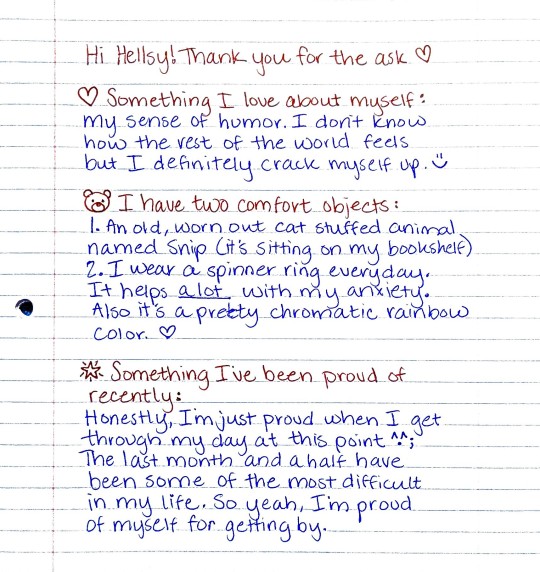 Hi Hellsy! Thank you for the ask ♡
♡ Something I love about myself:
my sense of humor. I don't know
how the rest of the world feels
but I definitely crack myself up. :)
I have two comfort objects:
1. An old, worn out cat stuffed animal
named Snip (it's sitting on my bookshelf)
2. I wear a spinner ring everyday.
It helps a lot with my anxiety.
Also it's a pretty chromatic rainbow
color. ♡
Something I've been proud of
recently:
Honestly, I'm just proud when I get
through my day at this point ^^;
The last month and a half have
been some of the most difficult
in my life. So yeah, I'm proud
of myself for getting by.